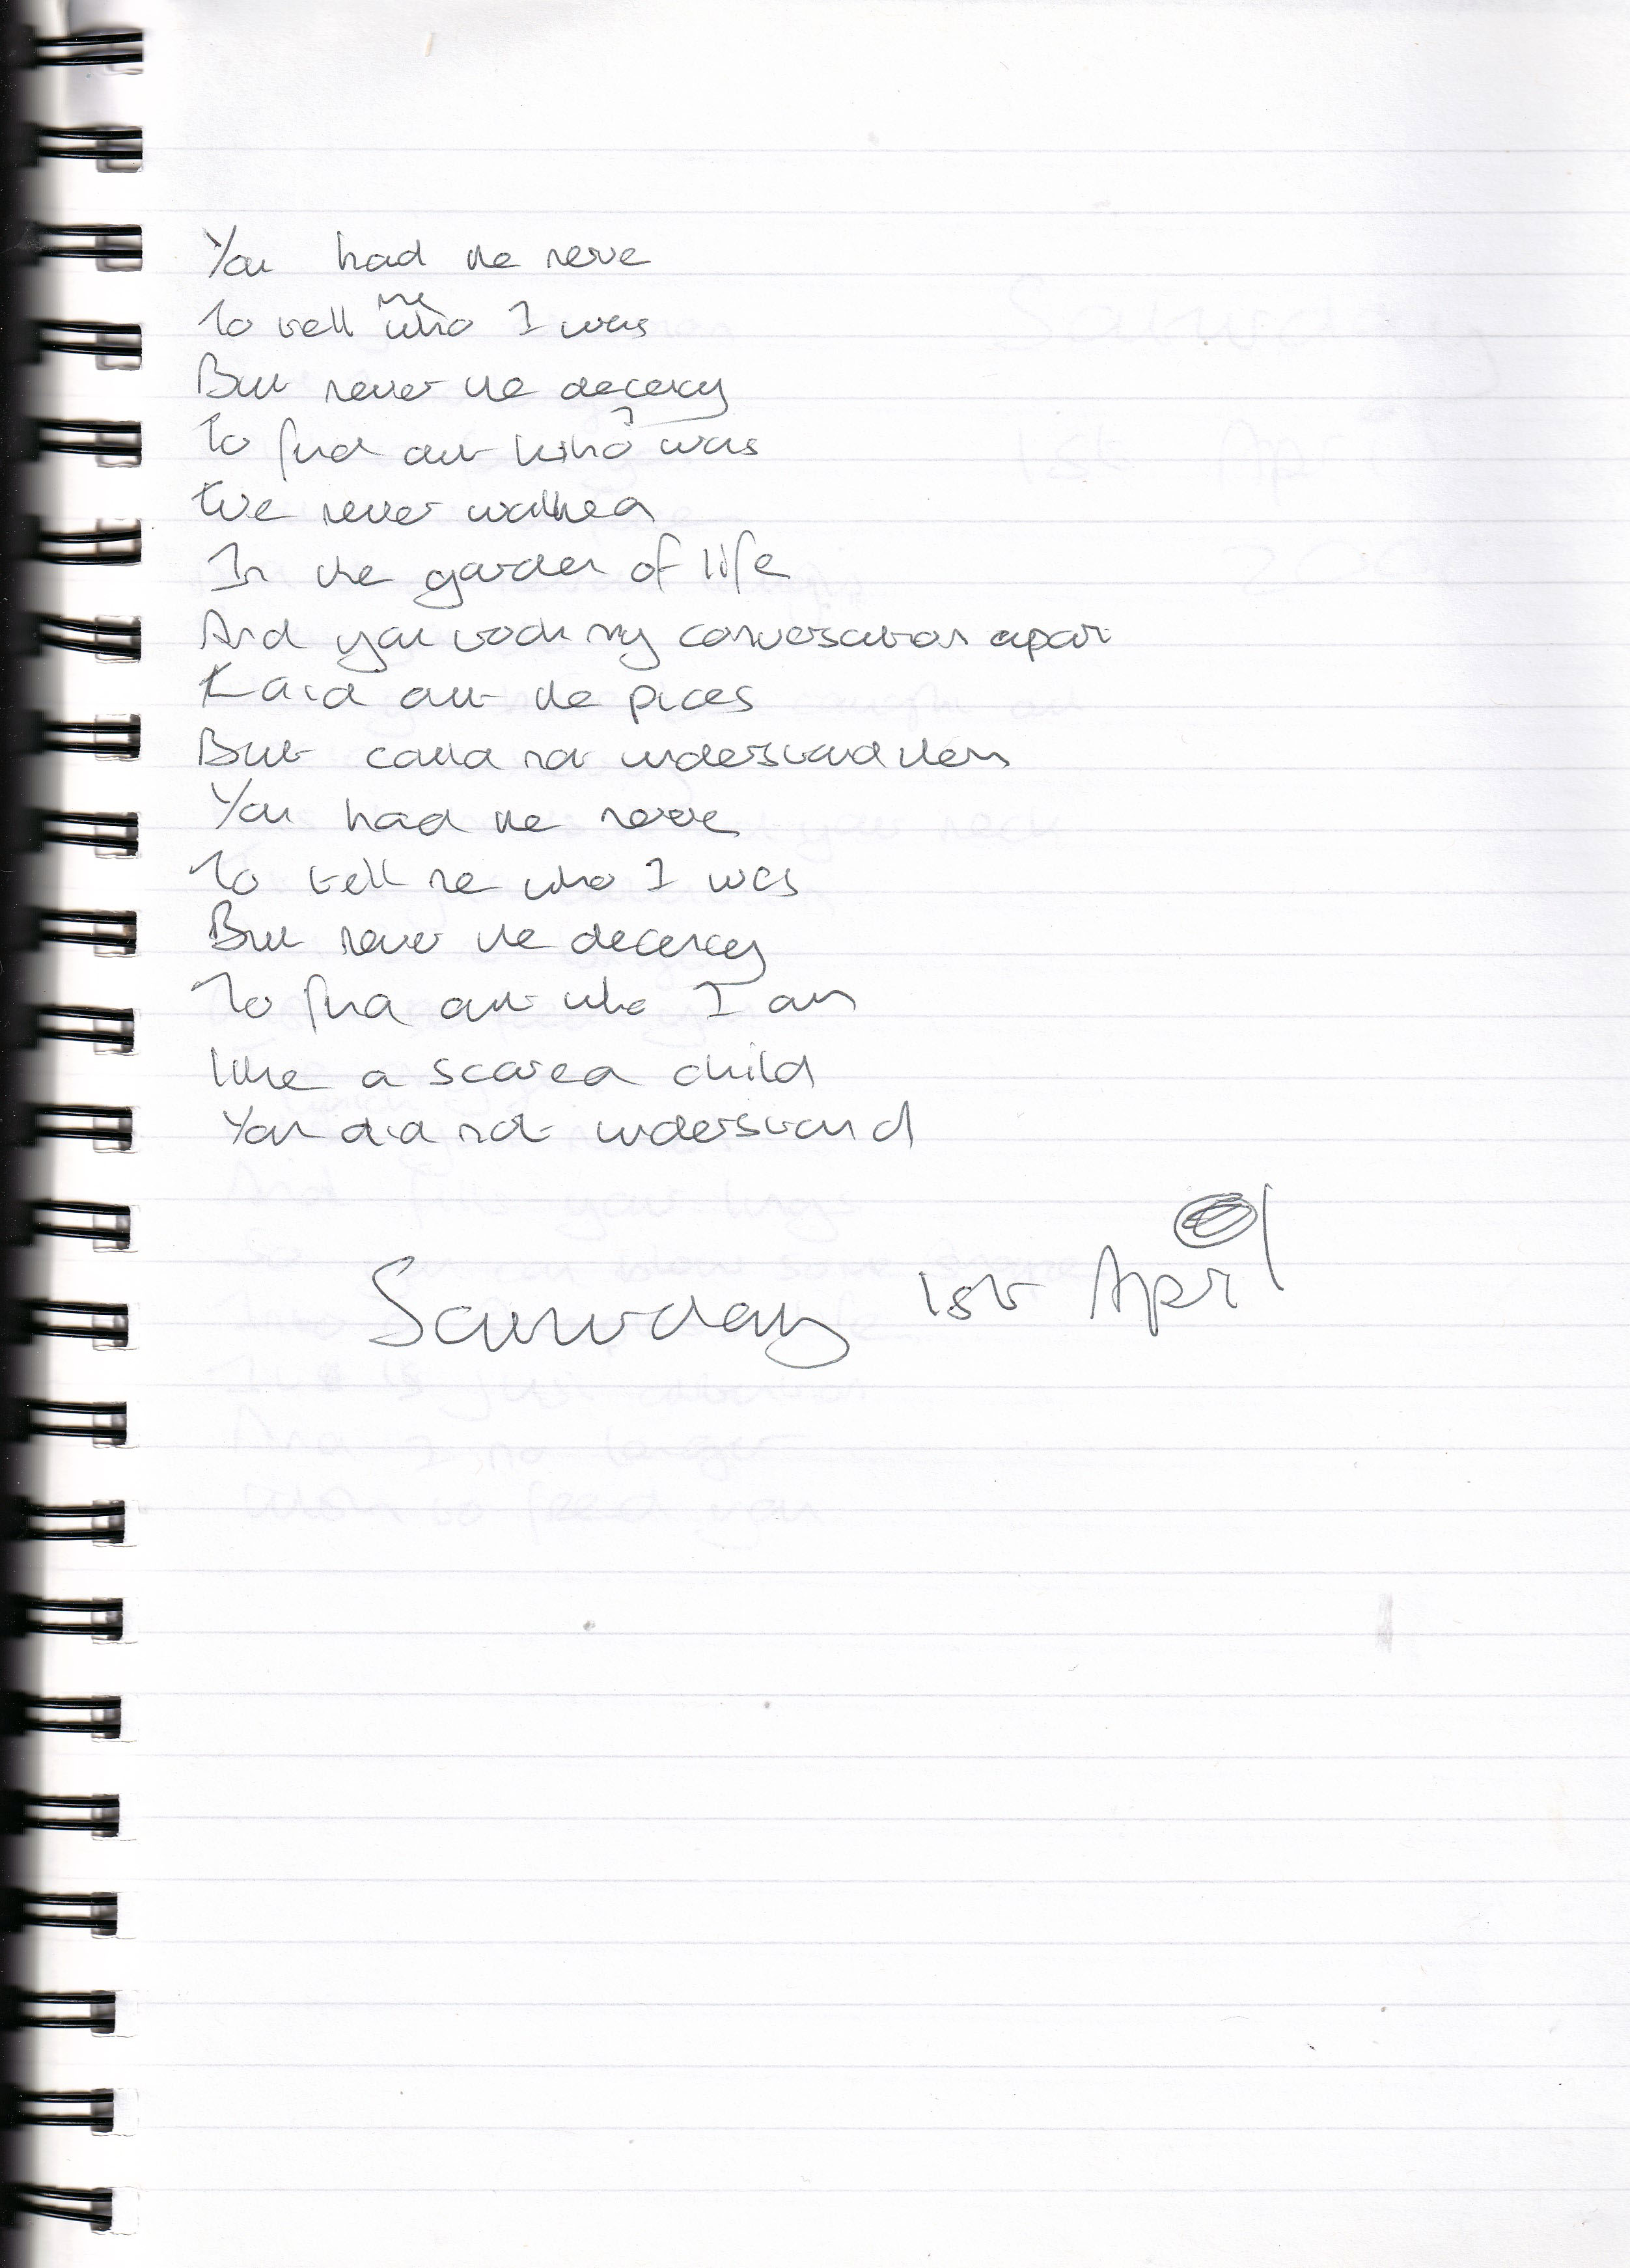 You had the nerve
To tell me who I was
But never the decency
To find out who I was
We never walked
In the garden of life
And you took my conversation apart
Laid out the pices
But could not understand them
You had the nerve
To tell me who I was
But never the decency
To find out who I am
like a scared child
You did not understand
Saturday 1st April